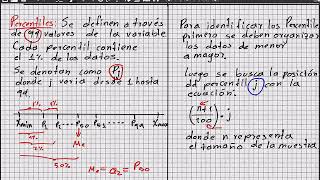 Percentiles: Se definen a través
de 99 valores de la variable
Cada percentil contiene
el 1% de los datos.
Se denotan como Pj
donde j varia desde 1 hasta
99.
1% 1% 1%
Xmin P1 P2 ... P50 P51 ... P99 Xmax
50%
Me = Q2 = P50
Para identificar los Percentile
primero se deben organizar
los datos de menor
a mayor.
Luego se busca la posición
del percentil j con la
ecuación.
(n+1/100) · j
donde n representa
el tamaño de la muestra